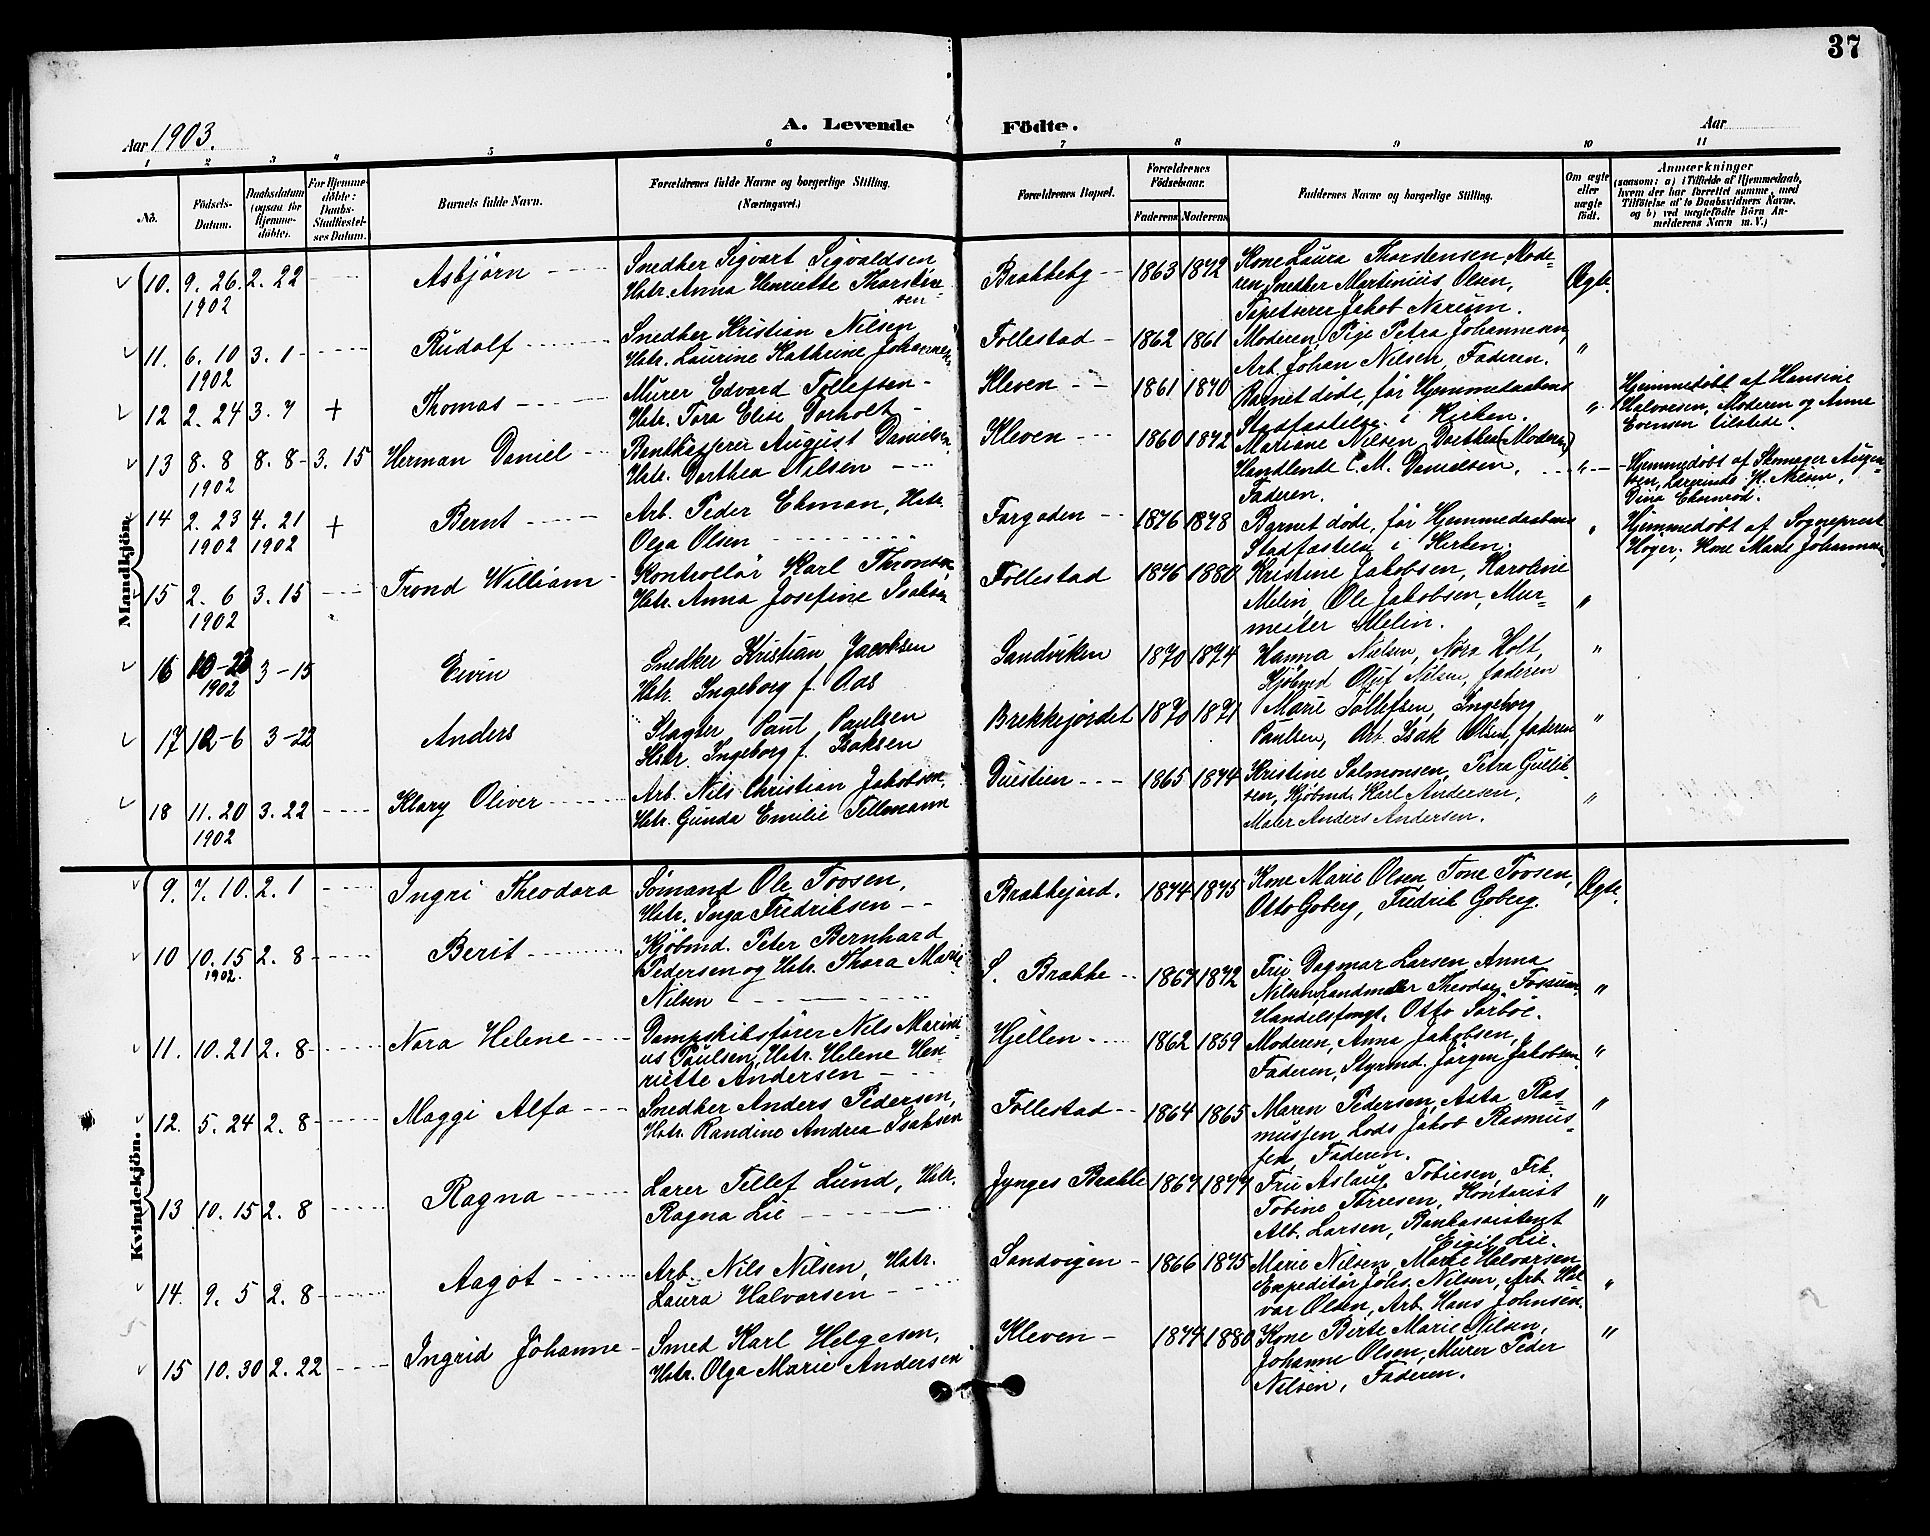 37
Aar 1903.
A. Levende Födte.
Aar
1 2 3 4 5 6 7 8 9 10 11
No.
Födsels-Datum.
Daabsdatum (ogsaa for Hjemme-döbte).
For Hjemme-döbte: Daabs-Stadfæstel-ses Datum.
Barnets fulde Navn.
Forældrenes fulde Navne og borgerlige Stilling.
(Næringsvei.)
Forældrenes Bopæl.
Forældrenes Födselsaar.
Faderens. Moderens.
Faddernes Navne og borgerlige Stilling.
Om ægte eller uægte födt.
Anmærkninger
(saasom: a) i Tilfælde af Hjemmedaab, hvem der har forrettet samme, med Tilföielse af to Daabsvidners Navne, og b) ved uægtefödte Börn Anmelderens Navn m. V.)
Mandkjön.
10. 9. 26. 1902 2. 22 Asbjörn
Snedker Sigvart Sigvaldsen
Hstr. Anna Henriette Thorsten-
sen
Brakkebg 1863 1872
Kone Laura Thorstensen, Mode-
ren, Snedker Martinius Olsen,
Tapetserer Jakob Narum. Ægte.
11. 6. 10 1902 3. 1 Rudolf
Snedker Kristian Nilsen
Hstr. Laurine Kathrine Johannesen
Follestad 1862 1861
Moderen, Pige Petra Johannesen,
Arb. Johan Nilsen, Faderen. "
12 2. 24 3. 7 + Thomas
Murer Edvard Tollefsen
Hstr. Tora Elise Dorholt
Kleven 1861 1870
Barnet døde, før Hjemmedaabens
Stadfæstelse i Kirken. "
Hjemmedøbt af Hansine
Halvorsen, Moderen og Anne
Evensen tilstede.
13 8. 8 1902 8. 8 3. 15 Herman Daniel
August Danielsen
Hstr. Dorthea Nilsen
Kleven 1860 1872
Mariane Nilsen, Dorthea (Moderen)
Handlende C. M. Danielsen,
Faderen. "
Hjemmedøbt af Skomager
H. Nilsen,
Dina
14 2. 23 1902 4. 21 1902 + Bernt
Arb. Peder Ekman, Hstr.
Olga Olsen
Torgaden 1876 1878
Barnet døde, før Hjemmedaabens
Stadfæstelse i Kirken. "
Hjemmedøbt af Sogneprest
Høyer, Kone Marie Johannesen
15 2. 6 1902 3. 15 Trond William
Kontrollør Karl Thronsen
Hstr. Anna Josefine Isaksen
Follestad 1876 1880
Kristine Jakobsen, Karoline
Melin, Ole Jakobsen, Mur-
mester Melin. "
16 10-23 1902 3-15 Eivin
Snedker Kristian Jacobsen
Hstr. Ingeborg f. Aas
Sandviken 1870 1874
Hanna Nielsen, Nora Holt,
Kjøbmd Oluf Nilsen, faderen "
17 12-6 3-22 Anders
Slagter Paul Paulsen
Hstr. Ingeborg f. Isaksen
Brekkejordet 1870 1871
Marie Tollefsen, Ingeborg
Paulsen, Arb. Isak Olsen, faderen "
18 11. 20 1902 3. 22 Klary Oliver
Arb. Nils Christian Jakobsen,
Hstr. Gunda Emilie Tellmann
Duestien 1865 1874
Kristine Salmonsen, Petra Gullik-
sen, Kjøbmd. Karl Andersen,
Maler Anders Andersen. "
Kvindekjön.
9. 7. 10. 2. 1 Ingri Theodora
Sömand Ole Toosen,
Hstr. Inga Fredriksen
Brakkejord. 1874 1875
Kone Marie Olsen, Tone Toosen,
Otto Goberg, Fredrik Goberg. Ægte.
10 10. 15 1902. 2. 8 Berit
Kjøbmd. Peter Bernhard
Pedersen og Hstr. Thora Marie
Nilsen
S. Brakke 1867 1872
Fru Dagmar Larsen, Anna
Nilsen, Landmåler Theodor Fossum,
Handelsfongt. Otto Sørboe. "
11. 10. 21 2. 8 Nora Helene
Dampskibsfører Nils Marini-
us Paulsen, Hstr. Helene Hen-
riette Andersen
Hjellen 1862 1859
Moderen, Anna Jakobsen,
Faderen, Styrmd. Jörgen Jakobsen. "
12. 5. 24 2. 8 Maggi Alfa
Snedker Anders Pedersen,
Hstr. Randine Andrea Isaksen
Follestad 1864 1865
Maren Pedersen, Asta Ras-
mussen, Lods Jakob Rasmus-
sen, Faderen. "
13 10. 15 2. 8 Ragna
Lærer Tellef Lund, Hstr.
Ragna Lie
Jynges Brakke 1867 1877
Fru Aslaug Tobiesen, Frk.
Tobine Torresen, Kontorist
Alb. Larsen, Bankassistent
Eigil Lie. "
14. 9. 5 2. 8 Aagot
Arb. Nils Nilsen, Hstr.
Laura Halvorsen
Sandvigen 1866 1875
Marie Nilsen, Marie Halvorsen,
Expeditør Johs. Nilsen, Arb. Hal-
vor Olsen, Arb. Hans Johnsen. "
15 10. 30 2. 22 Ingrid Johanne
Smed Karl Helgesen,
Hstr. Olga Marie Andersen
Kleven 1874 1880
Kone Birte Marie Nilsen,
Johanne Olsen, Murer Peder
Nilsen, Faderen. "